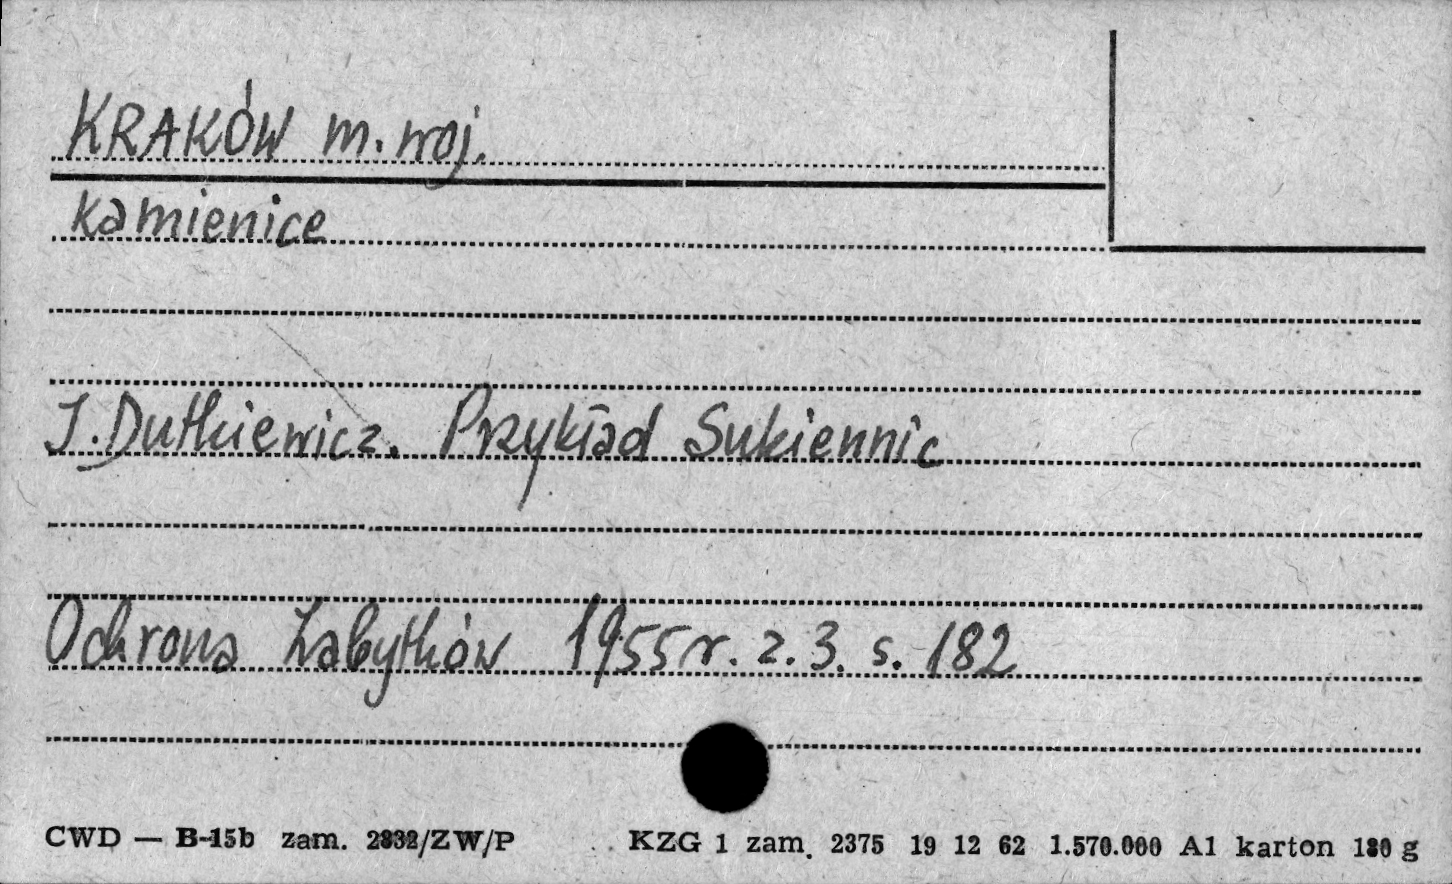 KRAKÓW m. woj.
kamienice
J. Dutkiewicz. Przykład Sukiennic
Ochrona Zabytków 1955 r. z. 3. s. 182
CWD — B-15b zam. 2832/ZW/P KZG 1 zam. 2375 19 12 62 1.570.000 A1 karton 180 g